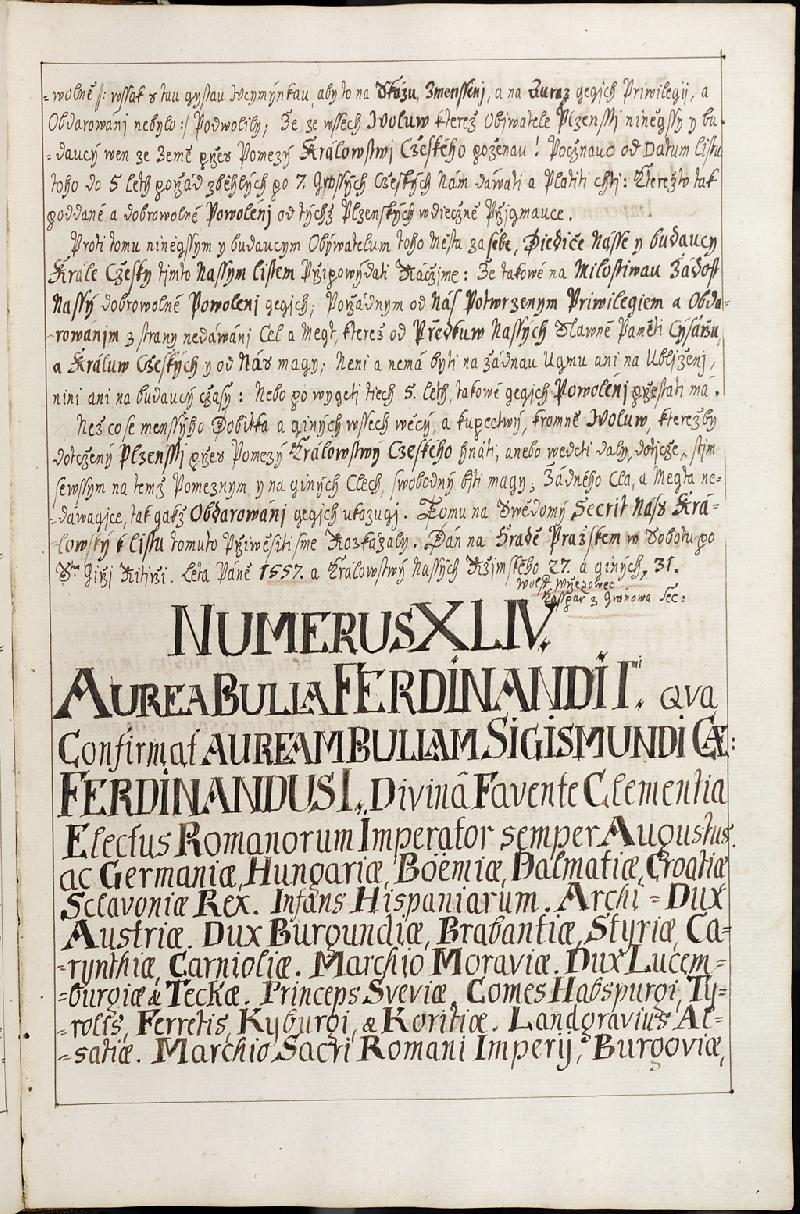 -wolně /: wssak s tau gystau Weymýnkau, aby to na Skázu, Zmenssenj, a na Auraz gegich Priwilegij, a
Obdarowánj nebylo :/ Podwolily; Že ze wssech Woluw kterež Obywatele Plzensstj ninègssy y bu-
-daucý wen ze Země přes Pomezý Králowstwj Cžeského poženau! Počznauc od Datum listu
toho do 5 leth pořád zběhlých po 7. Grossých Cžeských Nám dáwati a Platiti chtj: kterežto tak
poddané a dobrowolné Powolénj od týchž Plzenských wdiečzně Přigmauce.
Proti tomu ninègssym y budaucym Obýwatelum toho Města za sebe, Diediče Nássé y budaucy
Krále Cžesky tjmto Nassym listem Připowýdati Ráčzjme: Že takowé na Milostiwau Žádost
Nassý dobrowolné Powolenj gegich; Pořádnym od Nás Potwrzenym Priwilegiem a Obda-
-rowanjm z strany nedáwánj Cel a Meyt, kterež od Předkuw Nassých Slawné Paměti Cýsářu,
a Králuw Cžeských y od Nás magy; Nenj a nemá býti na žádnau Ugmu ani na Ublijženj,
nini ani na budaucý cžasy: Nebo po wygetj tiech 5. leth, takowé gegich Powolénj přestati má.
Než co se menssýho Dobitka a giných wssech wěcý, a kupectwý, kromně Woluw, kterežby
dotčenj Plzensstj přes Pomezý Králowstwý Czeského hnáti, anebo wedeti daly, dotýčze, s tjm
sewssym na temž Pomeznym y na giných Clech, swobodný býti magy, Žádného Cla, a Meyta ne-
-dáwagjce, tak gakž Obdarowánj gegich ukazugj. Tomu na Swědomý Secrit Náss Krá-
-lowský k listu tomuto Přiwěsiti sme Rozkázaly. Dán na Hradě Pražském w Sobotu po
Sm Giřj Ritiřzi. Léta Páně 1557. a Králowstwý Nassých Řzjmského 27. a giných, 31.
Wolf Wrzezowec
Kasspar z Gronowa Sec:
NUMERUS XLIV.
AUREA BULLA FERDINANDI Imi. QVA
Confirmat AUREAM BULLAM SIGISMUNDI CÆ:
FERDINANDUS I., Divinâ Favente Clementia
Electus Romanorum Imperator semper Augustus.
ac Germaniæ, Hungariæ, Boëmiæ, Dalmatiæ, Croatiæ
Sclavoniæ Rex. Infans Hispaniarum. Archi=Dux
Austriæ. Dux Burgundiæ, Brabantiæ, Styriæ, Ca-
-rynthiæ, Carnioliæ. Marchio Moraviæ. Dux Lucem-
-burgiæ & Teckæ. Princeps Sveviæ, Comes Habspurgi, Ty-
-rolis, Ferretis, Kyburgi, & Koritiæ. Landgravius Al-
-satiæ. Marchio Sacri Romani Imperij, Burgoviæ,